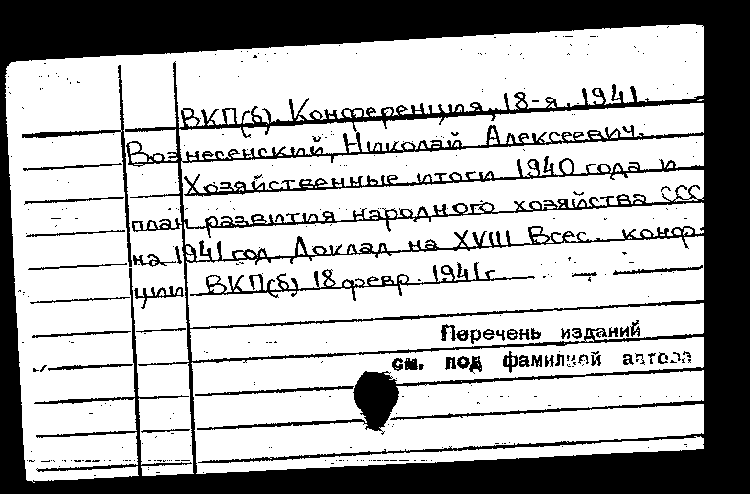 ВКП(б). Конференция, 18-я. 1941.
Вознесенский, Николай Алексеевич.
Хозяйственные итоги 1940 года и
план развития народного хозяйства ССС
на 1941 год. Доклад на XVIII Всес. конф-
ции ВКП(б) 18 февр. 1941 г.
Перечень изданий
см. под фамилией автора